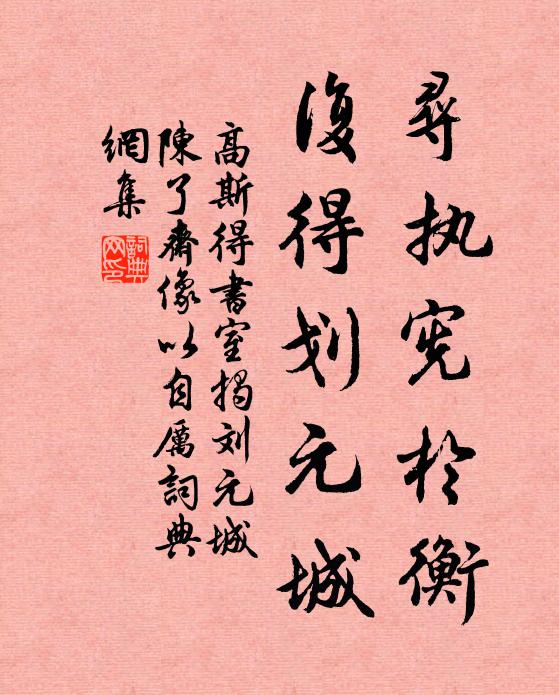 尋执宪於衡
復得划元城
高斯得書室揭刘元城
陳了齋像以自厲詞典
網集
詞典
网印